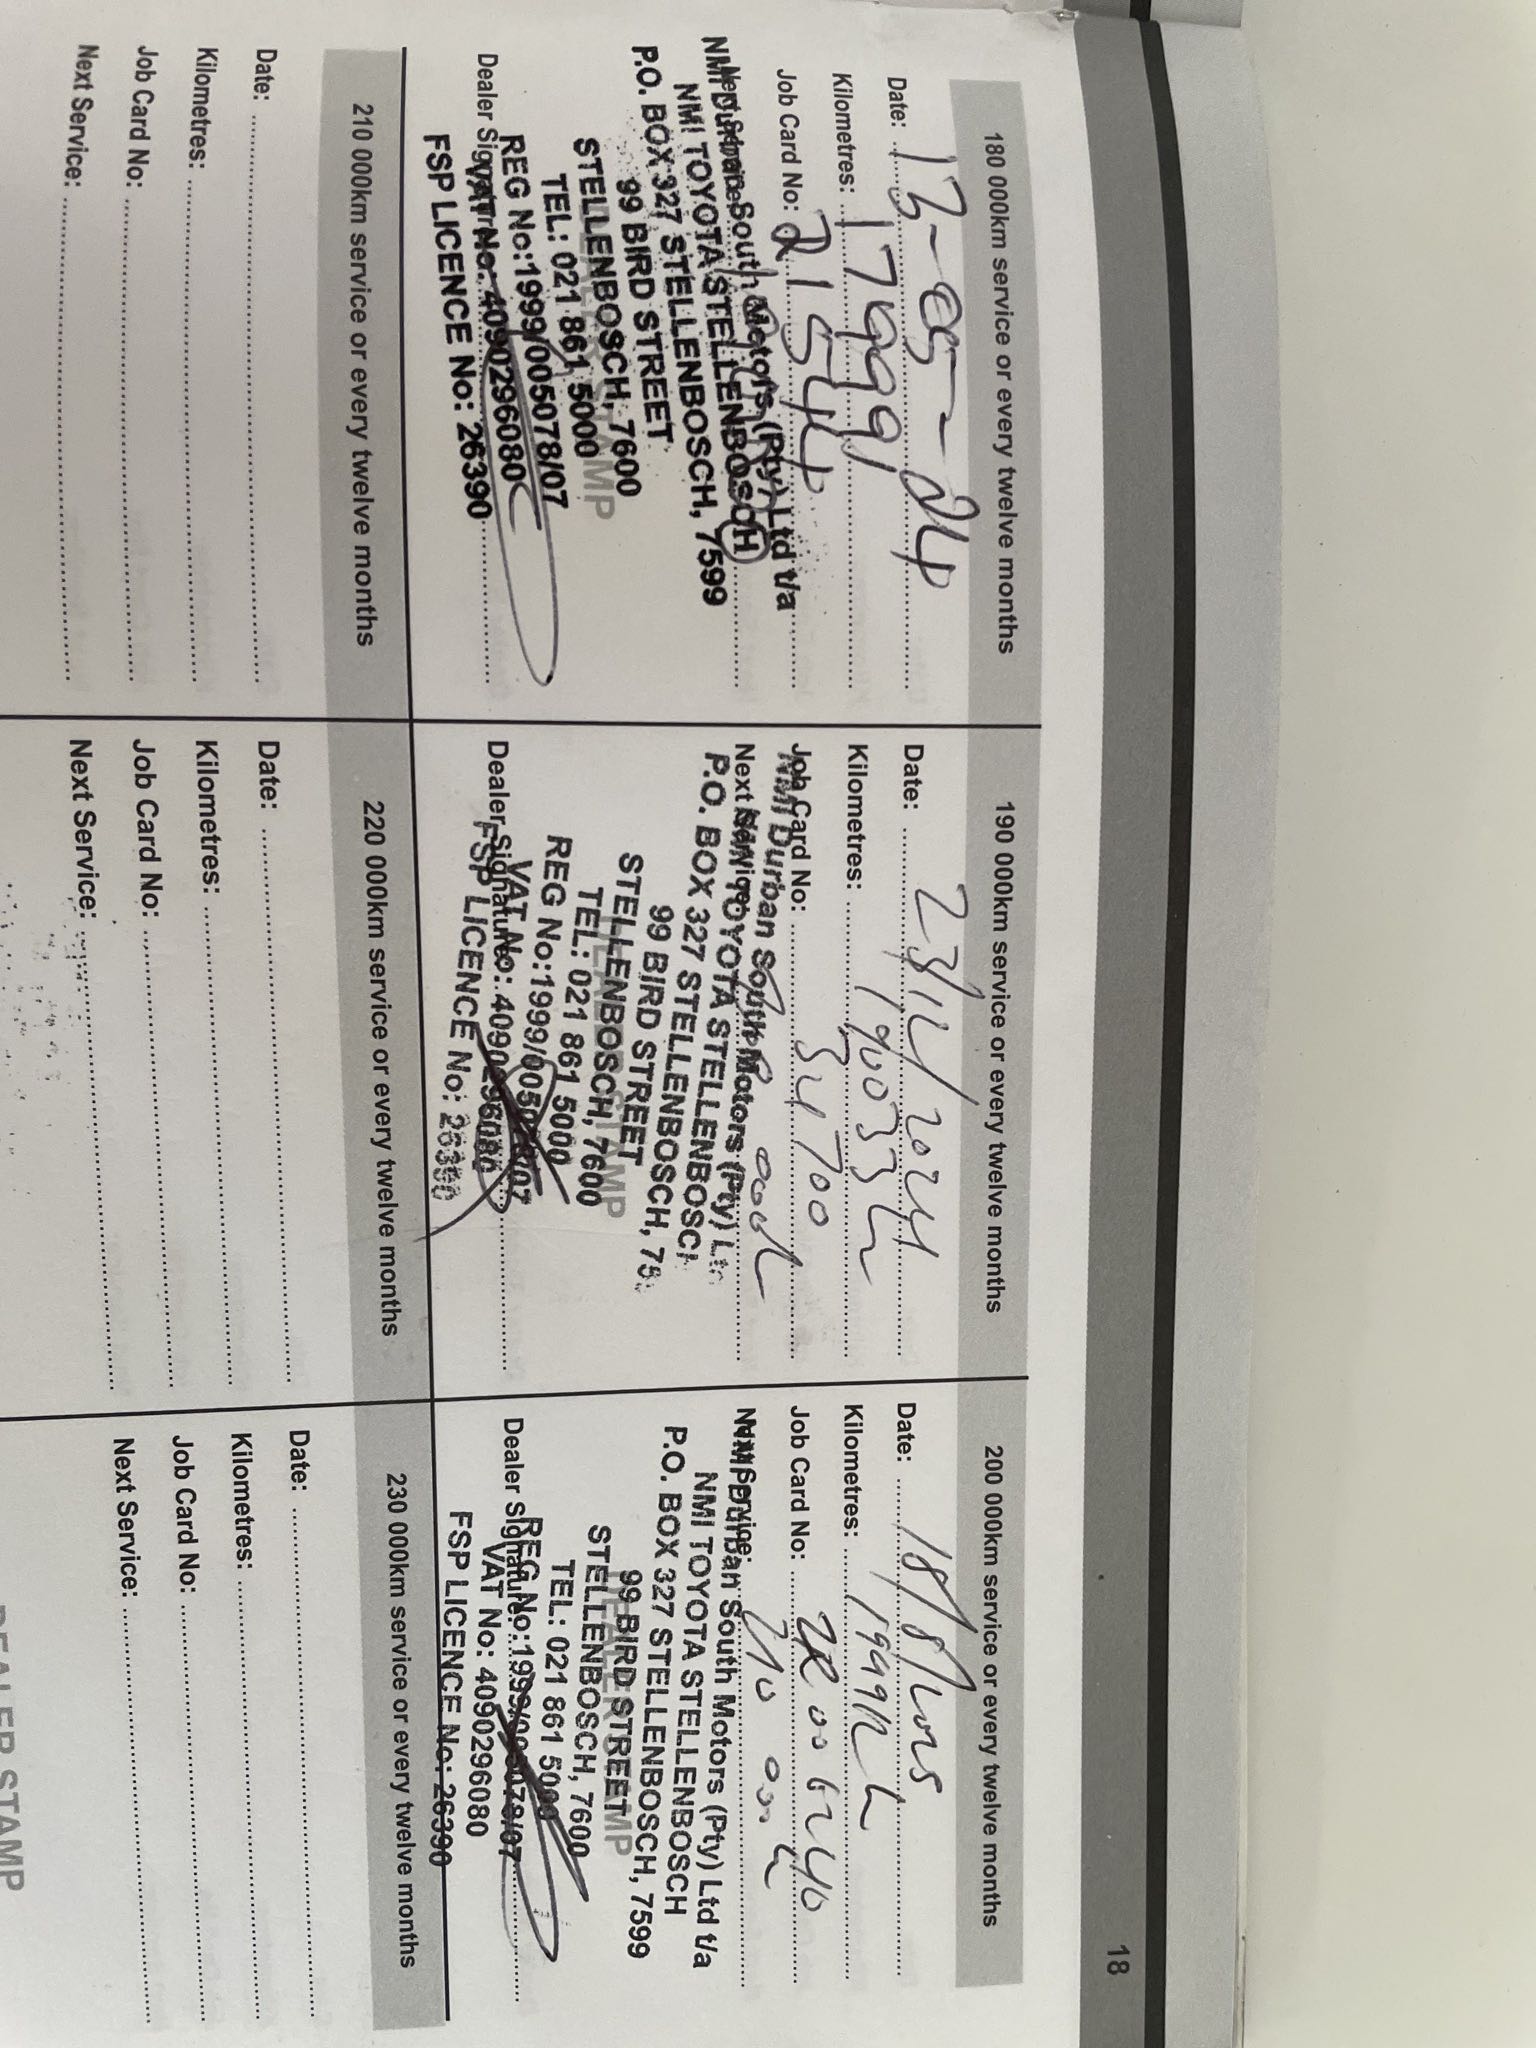 18
180 000km service or every twelve months
Date: 13-05-24
Kilometres: 179991
Job Card No: 21544
Next Service:
NMI Durban South Motors (Pty) Ltd t/a
NMI TOYOTA STELLENBOSCH
P.O. BOX 327 STELLENBOSCH, 7599
99 BIRD STREET
STELLENBOSCH, 7600
TEL: 021 861 5000
REG No:1999/005078/07
VAT No: 4090296080
FSP LICENCE No: 26390
DEALER STAMP
Dealer Signature:
190 000km service or every twelve months
Date: 23/12/2024
Kilometres: 190033
Job Card No: 34700
Next Service:
NMI Durban South Motors (Pty) Lt
NMI TOYOTA STELLENBOSC
P.O. BOX 327 STELLENBOSCH, 75
99 BIRD STREET
STELLENBOSCH, 7600
TEL: 021 861 5000
REG No:1999/005078/07
VAT No: 4090296080
FSP LICENCE No: 26390
DEALER STAMP
Dealer Signature:
200 000km service or every twelve months
Date: 18/8/2025
Kilometres:
Job Card No:
Next Service: 210 000
NMI Durban South Motors (Pty) Ltd t/a
NMI TOYOTA STELLENBOSCH
P.O. BOX 327 STELLENBOSCH, 7599
99 BIRD STREET
STELLENBOSCH, 7600
TEL: 021 861 5000
REG No:1999/005078/07
VAT No: 4090296080
FSP LICENCE No: 26390
DEALER STAMP
Dealer Signature:
210 000km service or every twelve months
Date:
Kilometres:
Job Card No:
Next Service:
220 000km service or every twelve months
Date:
Kilometres:
Job Card No:
Next Service:
230 000km service or every twelve months
Date:
Kilometres:
Job Card No:
Next Service:
DEALER STAMP